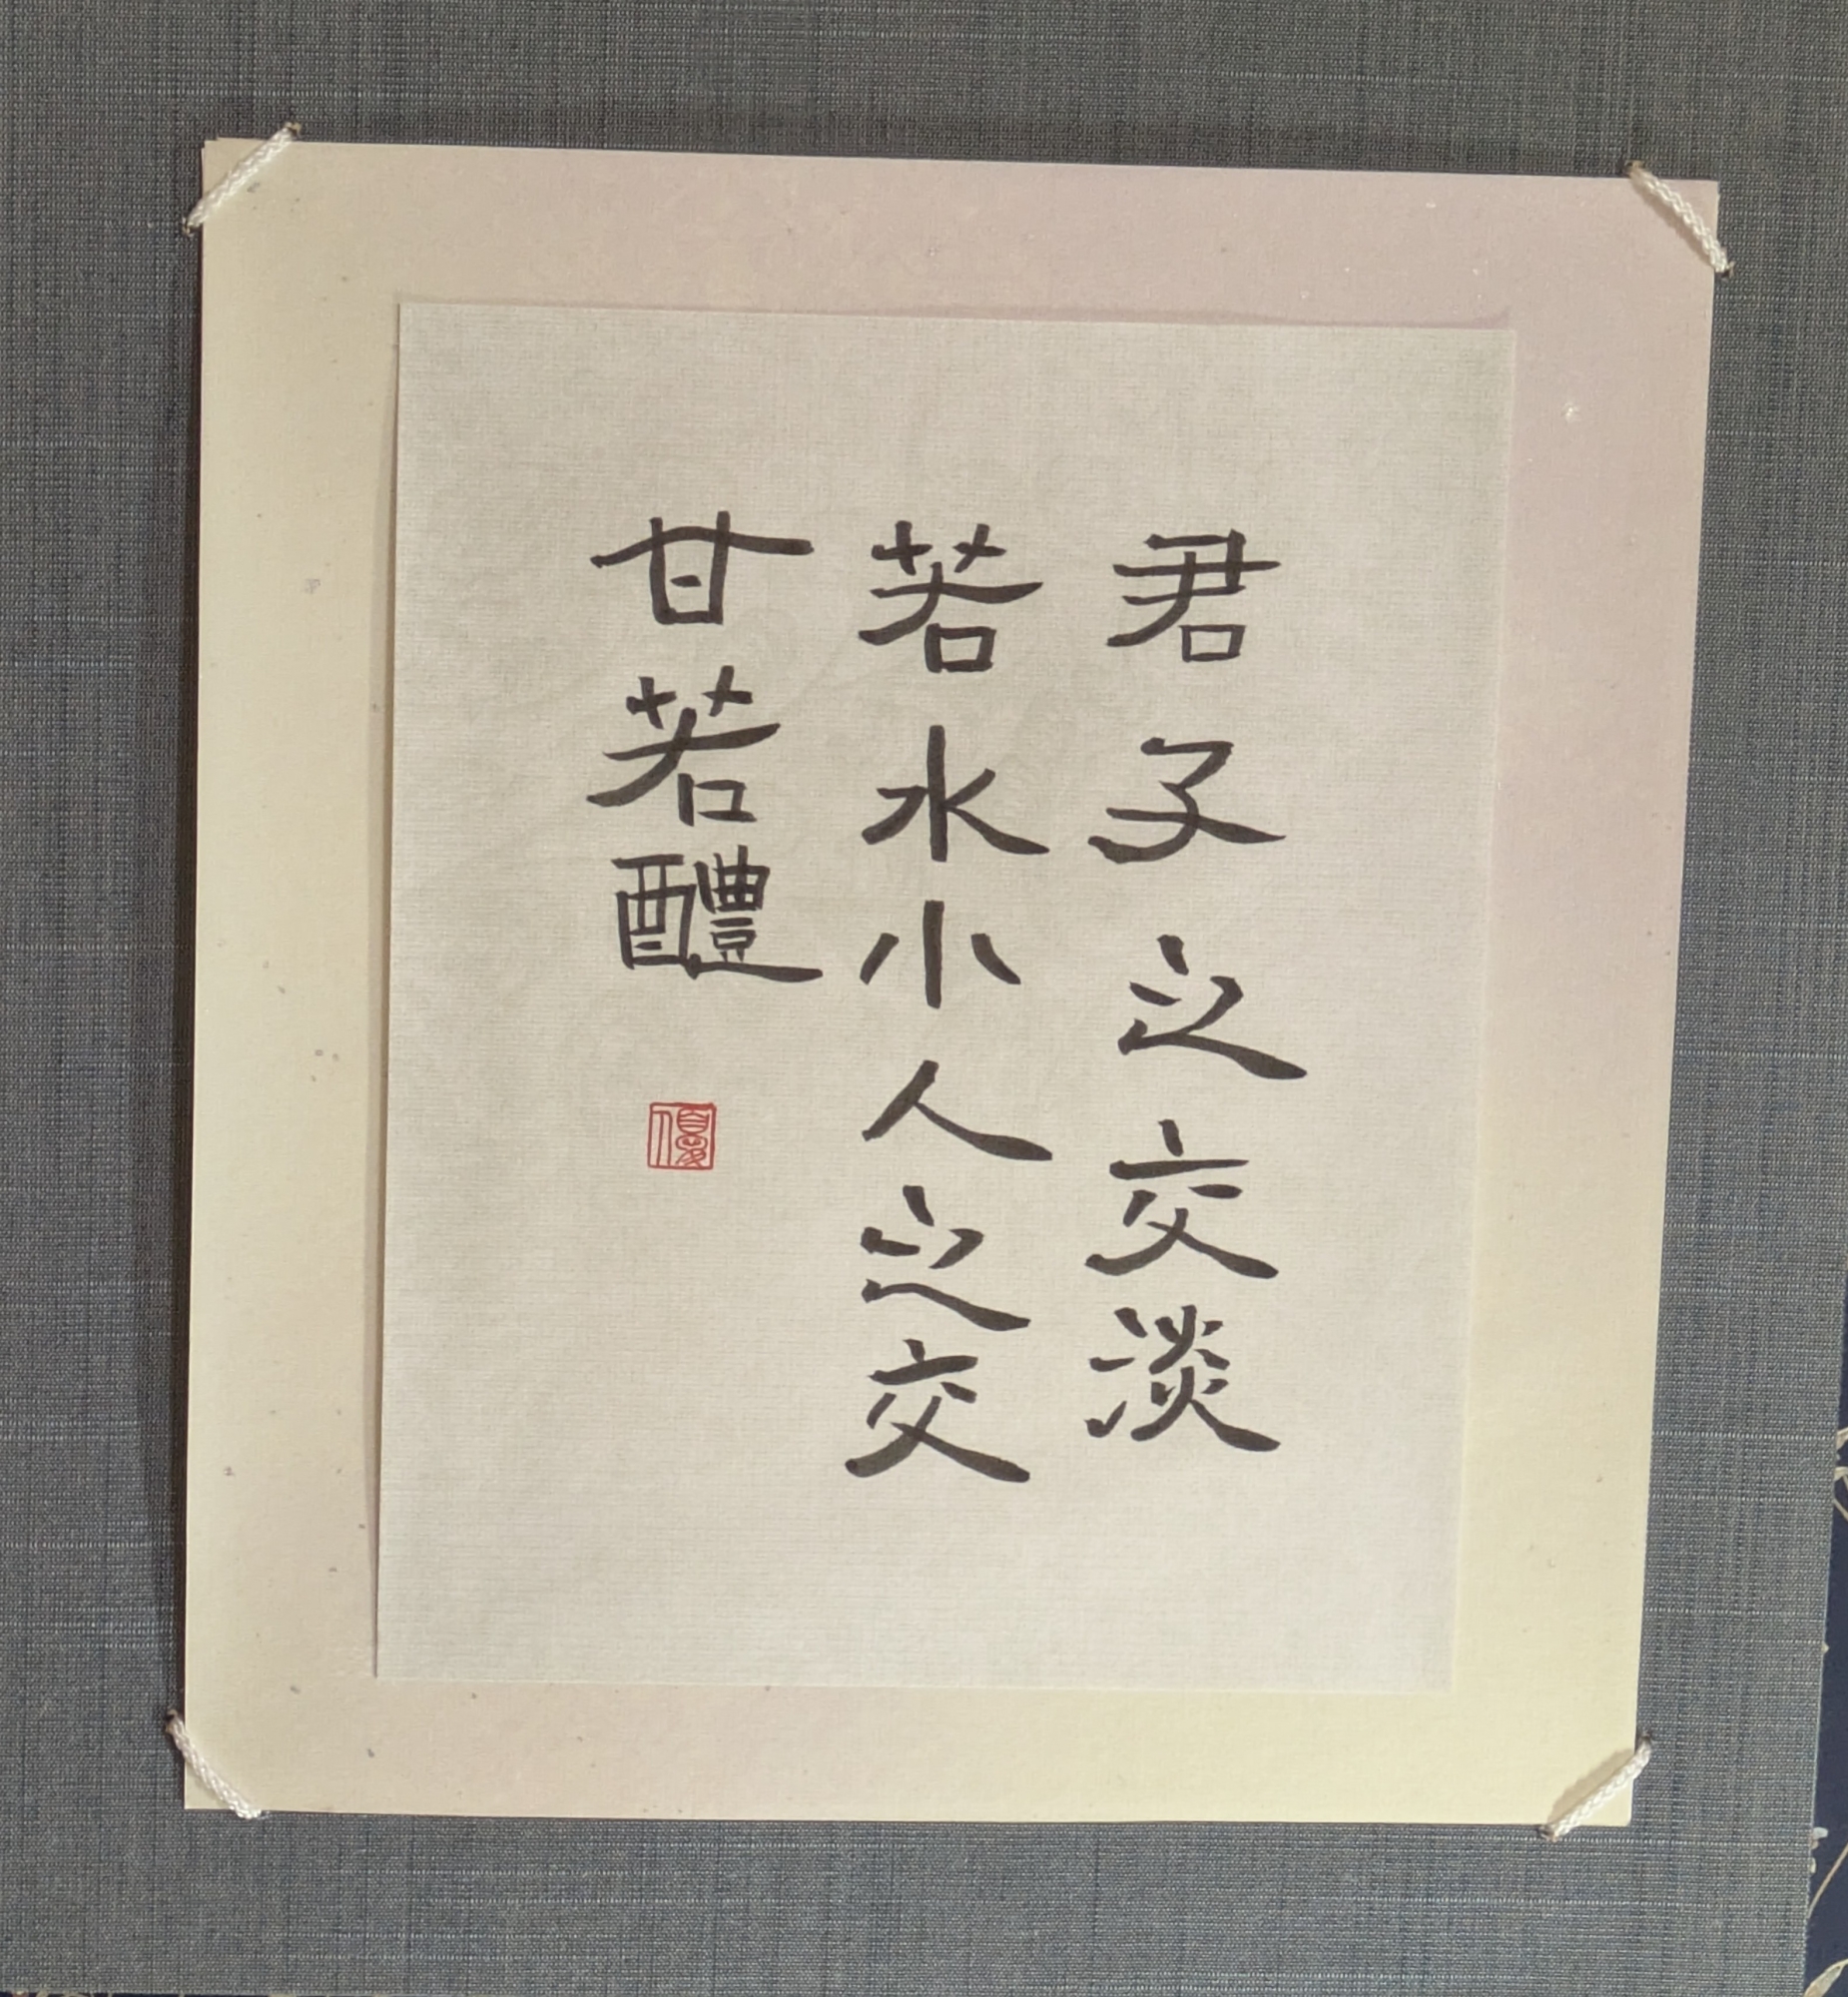 君子之交淡
若水小人之交
甘若醴
優